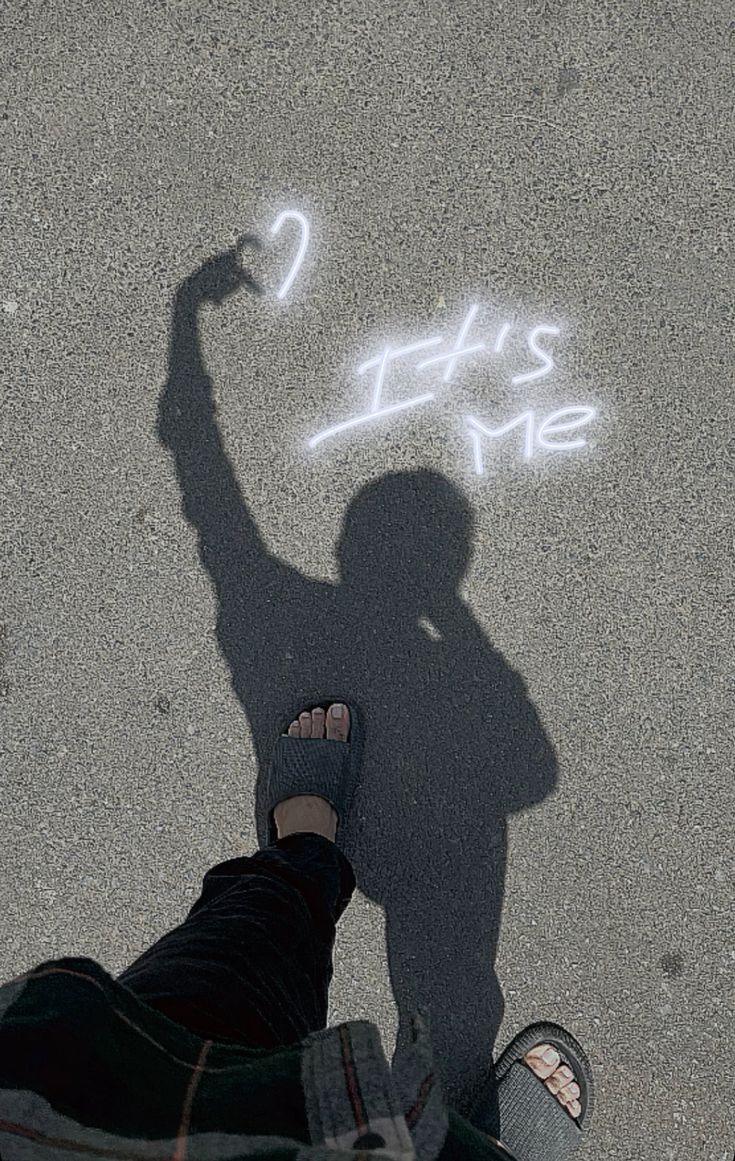 It's
Me